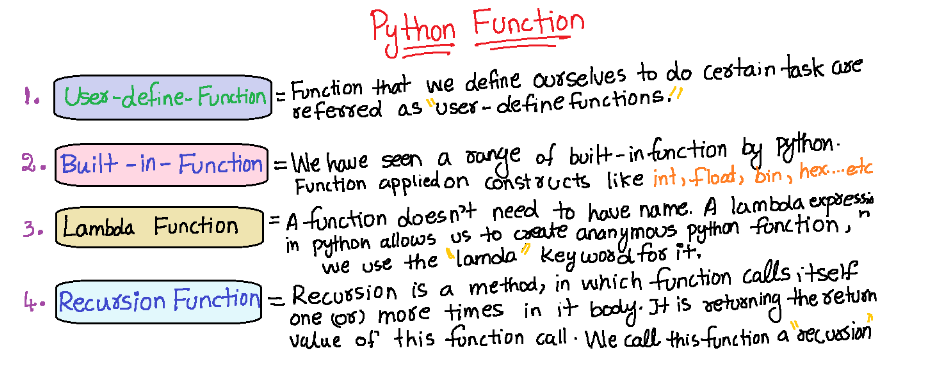 Python Function
1. User-define-Function = Function that we define ourselves to do certain task are
referred as "user-define functions."
2. Built-in-Function = We have seen a range of built-in function by Python.
Function applied on constructs like int, float, bin, hex....etc
3. Lambda Function = A function doesn't need to have name. A lambda expressio
in python allows us to create ananymous python function, n
we use the "lamda" keyword for it.
4. Recursion Function = Recursion is a method, in which function calls itself
one (or) more times in it body. It is returning the return
value of this function call. We call this function a "recursion"